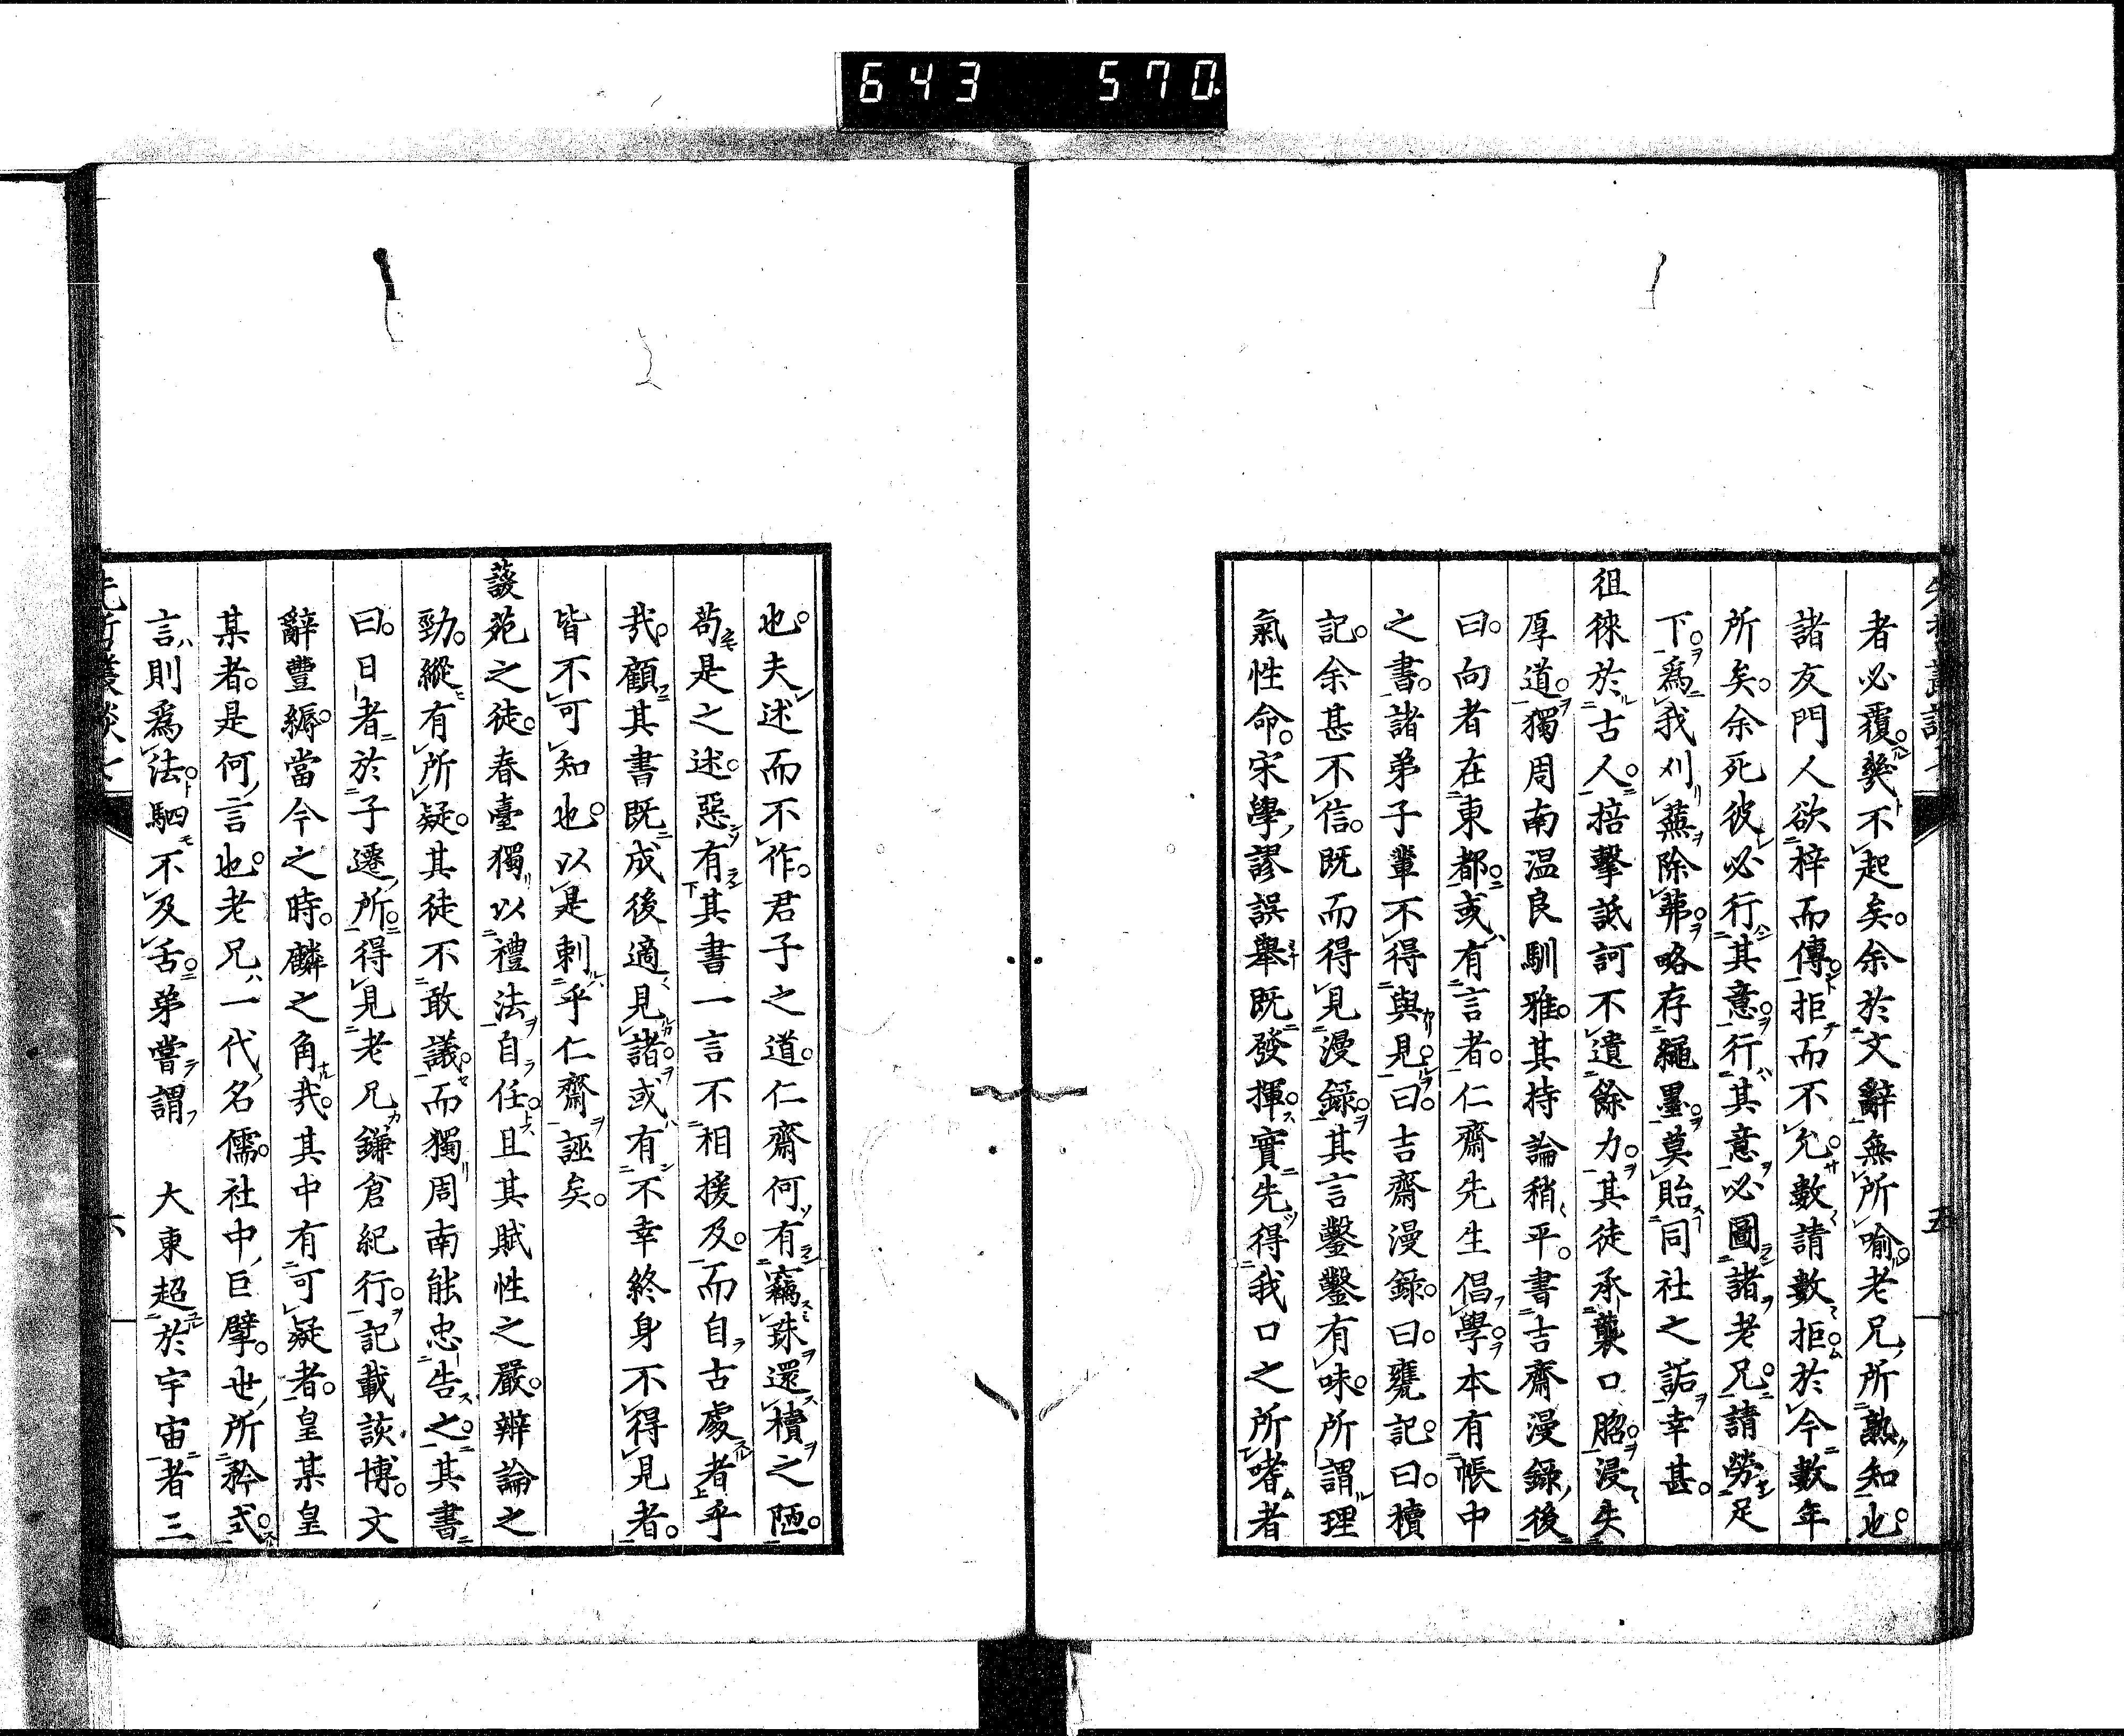 643 570
者必覆㡬不起矣。余於文辭無所喻。老兄所熟知也。
諸友門人欲梓而傳。拒而不允。數請數拒。於今數年
所矣。余死彼必行其意。行其意必圖諸老兄。請勞足
下。爲我刈蕪除茀。略存繩墨。莫貽同社之詬。幸甚。
徂徠於古人。掊擊詆訶不遺餘力。其徒承襲口胳。浸失
厚道。獨周南温良馴雅。其持論稍平。書吉齋漫錄後
曰。向者在東都。或有言者。仁齋先生倡學。本有帳中
之書。諸弟子輩不得與見。曰。吉齋漫錄。曰。甕記。曰。櫝
記。余甚不信。既而得見漫錄。其言鑿鑿有味。所謂理
氣性命。宋學謬誤舉既發揮。實先得我口之所嗜者
也。夫述而不作。君子之道。仁齋何有竊珠還櫝之陋。
苟是之述。惡有其書一言不相援及。而自古處者乎
哉。顧其書既成後適見諸。或有不幸終身不得見者。
皆不可知也。以是刺乎仁齋誣矣。
蘐苑之徒。春臺獨以禮法自任。且其賦性之嚴。辨論之
勁。縱有所疑。其徒不敢議。而獨周南能忠告之。其書
曰。日者於子遷所。得見老兄鎌倉紀行。記載該博。文
辭豐縟。當今之時。麟之角哉。其中有可疑者。皇某皇
某者。是何言也。老兄一代名儒。社中巨擘。世所矜式。
言則爲法。駟不及舌。弟嘗謂 大東超於宇宙者三
先哲叢談七
六
五